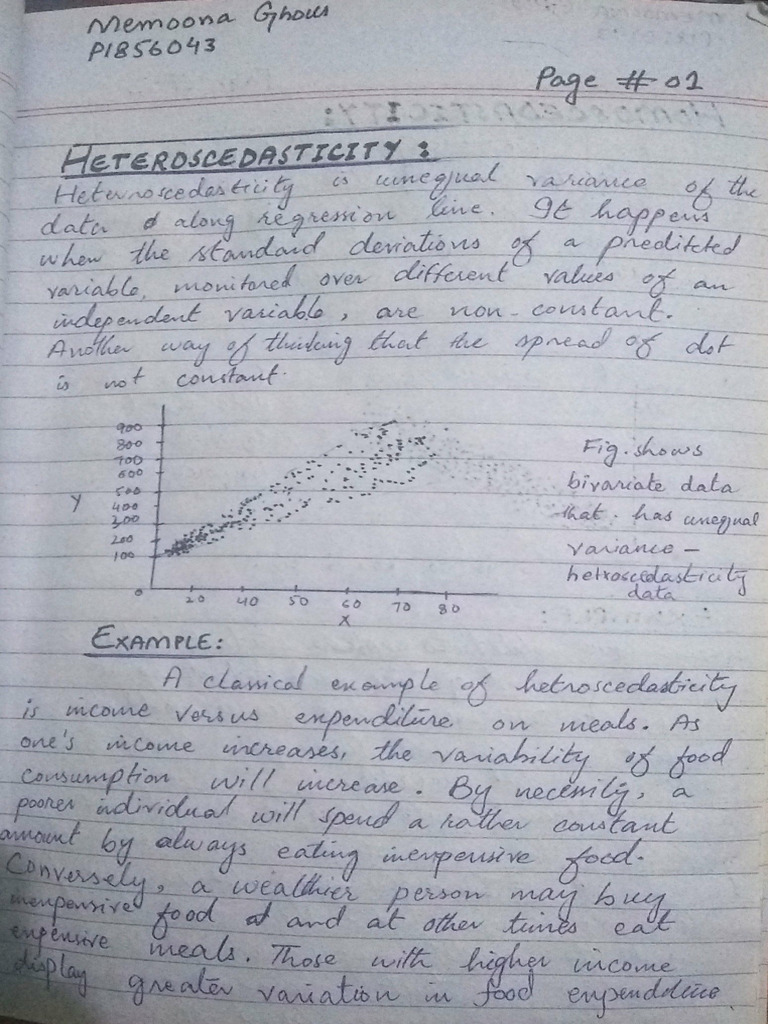 Memoona Ghous
P1856043
Page # 01
HETEROSCEDASTICITY :
Heternoscedasticity is unequal variance of the
data along regression line. It happens
when the standard deviations of a predit­cted
variable, monitored over different values of an
independent variable, are non-constant.
Another way of thinking that the spread of dot
is not constant.
900
800
700
600
500
400
300
200
100
0
Y
20 40 50 60 70 80
X
Fig. shows
bivariate data
that has unequal
variance -
hetroscedasticity
data
EXAMPLE:
A classical example of hetroscedasticity
is income versus expenditure on meals. As
one's income increases, the variability of food
consumption will increase. By necessity, a
poorer individual will spend a rather constant
amount by always eating inexpensive food.
Conversely, a wealthier person may buy
inexpensive food and at other times eat
expensive meals. Those with higher income
display greater variation in food expenditure